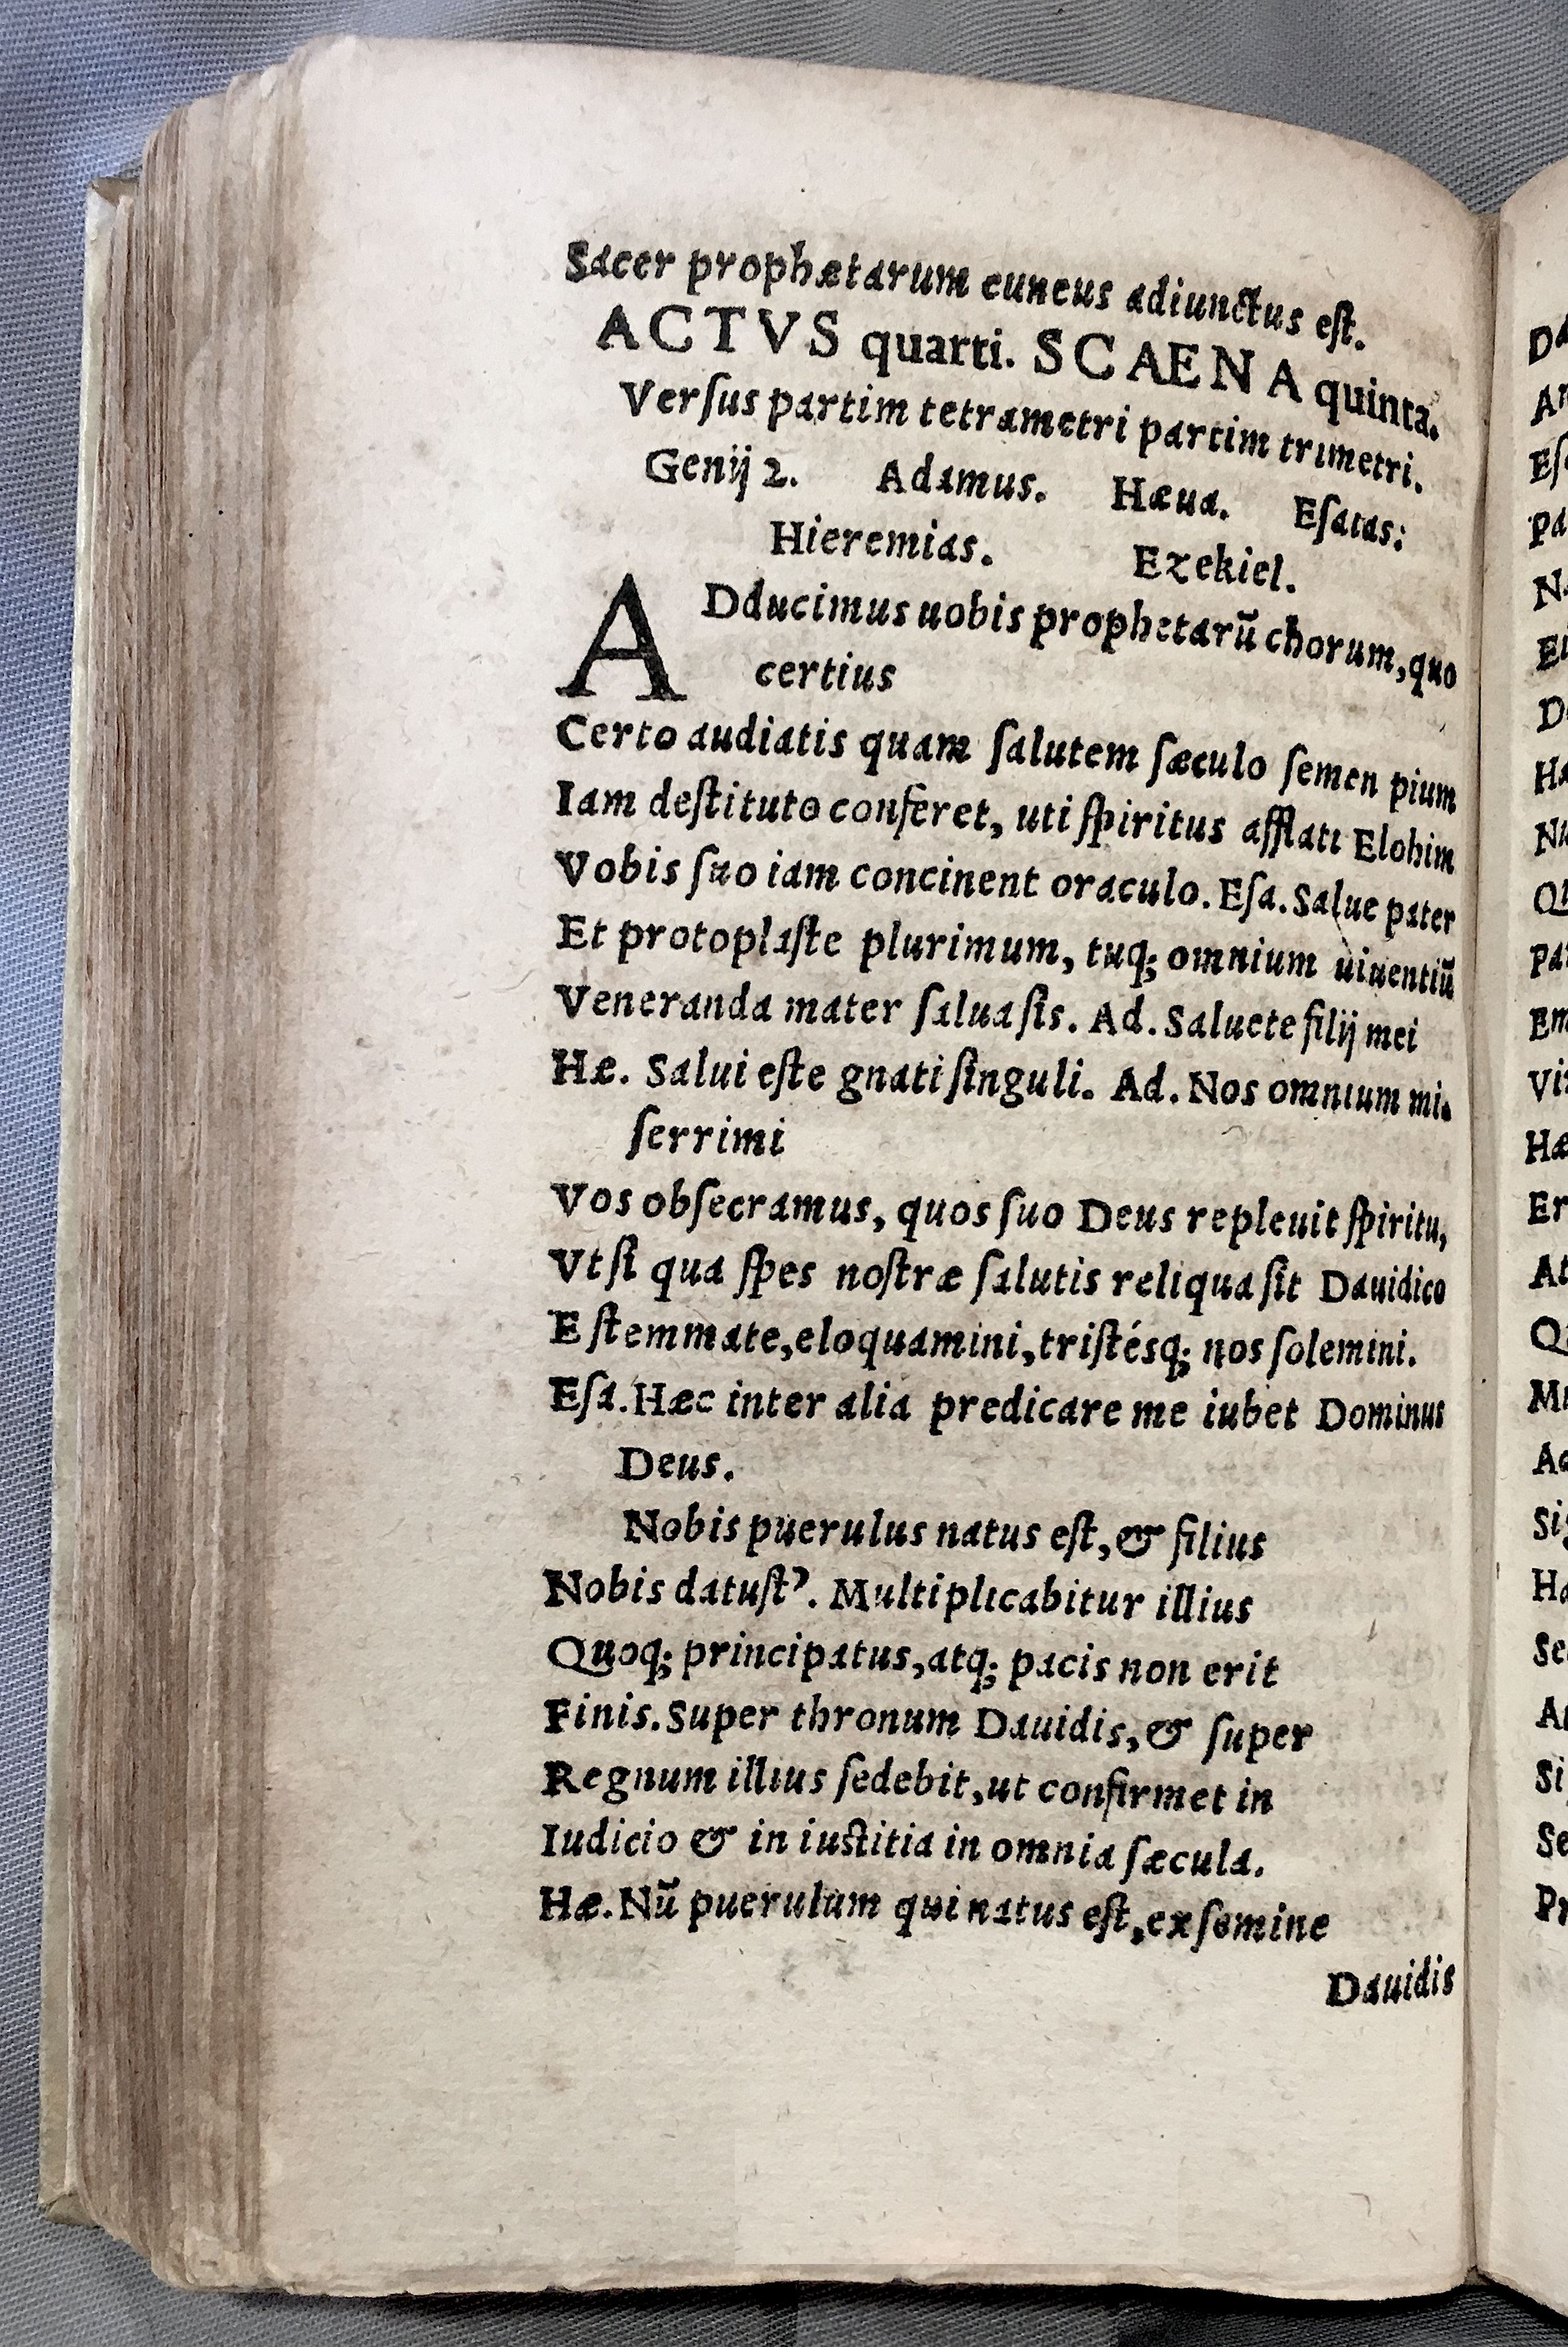 Sacer prophætarum cuneus adiunctus eſt.
ACTVS quarti. SCAENA quinta.
Verſus partim tetrametri partim trimetri.
Genij 2. Adamus. Hæua. Eſaias:
Hieremias. Ezekiel.
ADducimus uobis prophetarū chorum, quo
certius
Certo audiatis quam ſalutem ſæculo ſemen pium
Iam deſtituto conferet, uti ſpiritus afflati Elohim
Vobis ſuo iam concinent oraculo. Eſa. Salue pater
Et protoplaſte plurimum, tuq; omnium uiuentiū
Veneranda mater ſalua ſis. Ad. Saluete filij mei
Hæ. Salui eſte gnati ſinguli. Ad. Nos omnium mi-
ſerrimi
Vos obſecramus, quos ſuo Deus repleuit ſpiritu,
Vt ſi qua ſpes noſtræ ſalutis reliqua ſit Dauidico
E ſtemmate, eloquamini, triſtésq; nos ſolemini.
Eſa. Hæc inter alia predicare me iubet Dominus
Deus.
Nobis puerulus natus eſt, & filius
Nobis datuſt'. Multiplicabitur illius
Quoq; principatus, atq; pacis non erit
Finis. Super thronum Dauidis, & ſuper
Regnum illius ſedebit, ut confirmet in
Iudicio & in iuſtitia in omnia ſæcula.
Hæ. Nū puerulum qui natus eſt, ex ſemine
Dauidis